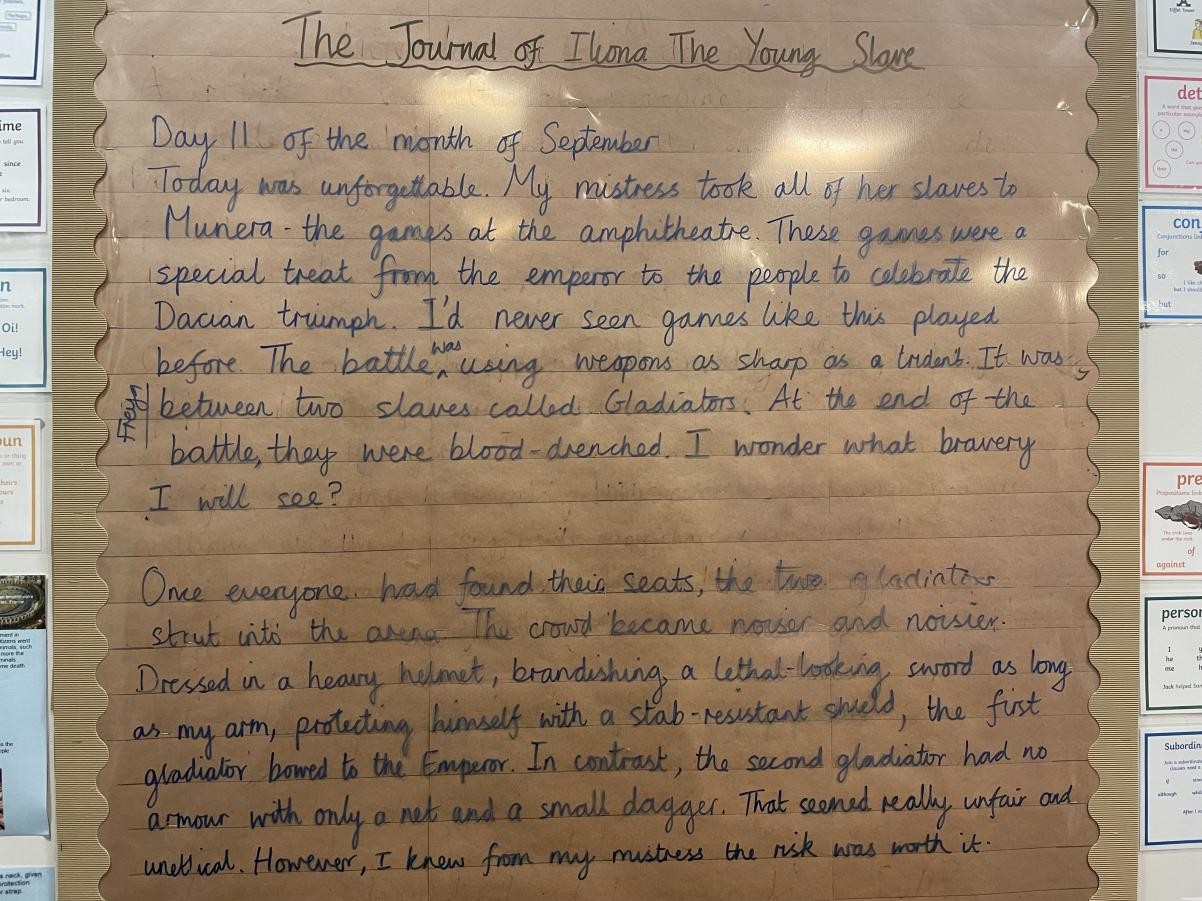 The Journal of Ilona The Young Slave
Day 11 of the month of September
Today was unforgettable. My mistress took all of her slaves to
Munera - the games at the amphitheatre. These games were a
special treat from the emperor to the people to celebrate the
Dacian triumph. I'd never seen games like this played
before. The battle was using weapons as sharp as a trident. It was
Freya
between two slaves called Gladiators. At the end of the
battle, they were blood-drenched. I wonder what bravery
I will see?
Once everyone had found their seats, the two gladiators
strut into the arena. The crowd became noiser and noisier.
Dressed in a heavy helmet, brandishing a lethal-looking sword as long
as my arm, protecting himself with a stab-resistant shield, the first
gladiator bowed to the Emperor. In contrast, the second gladiator had no
armour with only a net and a small dagger. That seemed really unfair and
unethical. However, I knew from my mistress the risk was worth it.
since
Oi!
Hey!
det
con
for
so
but
pre
of
against
person
A pronoun that
I
he
me
Subordin
if
although
After I